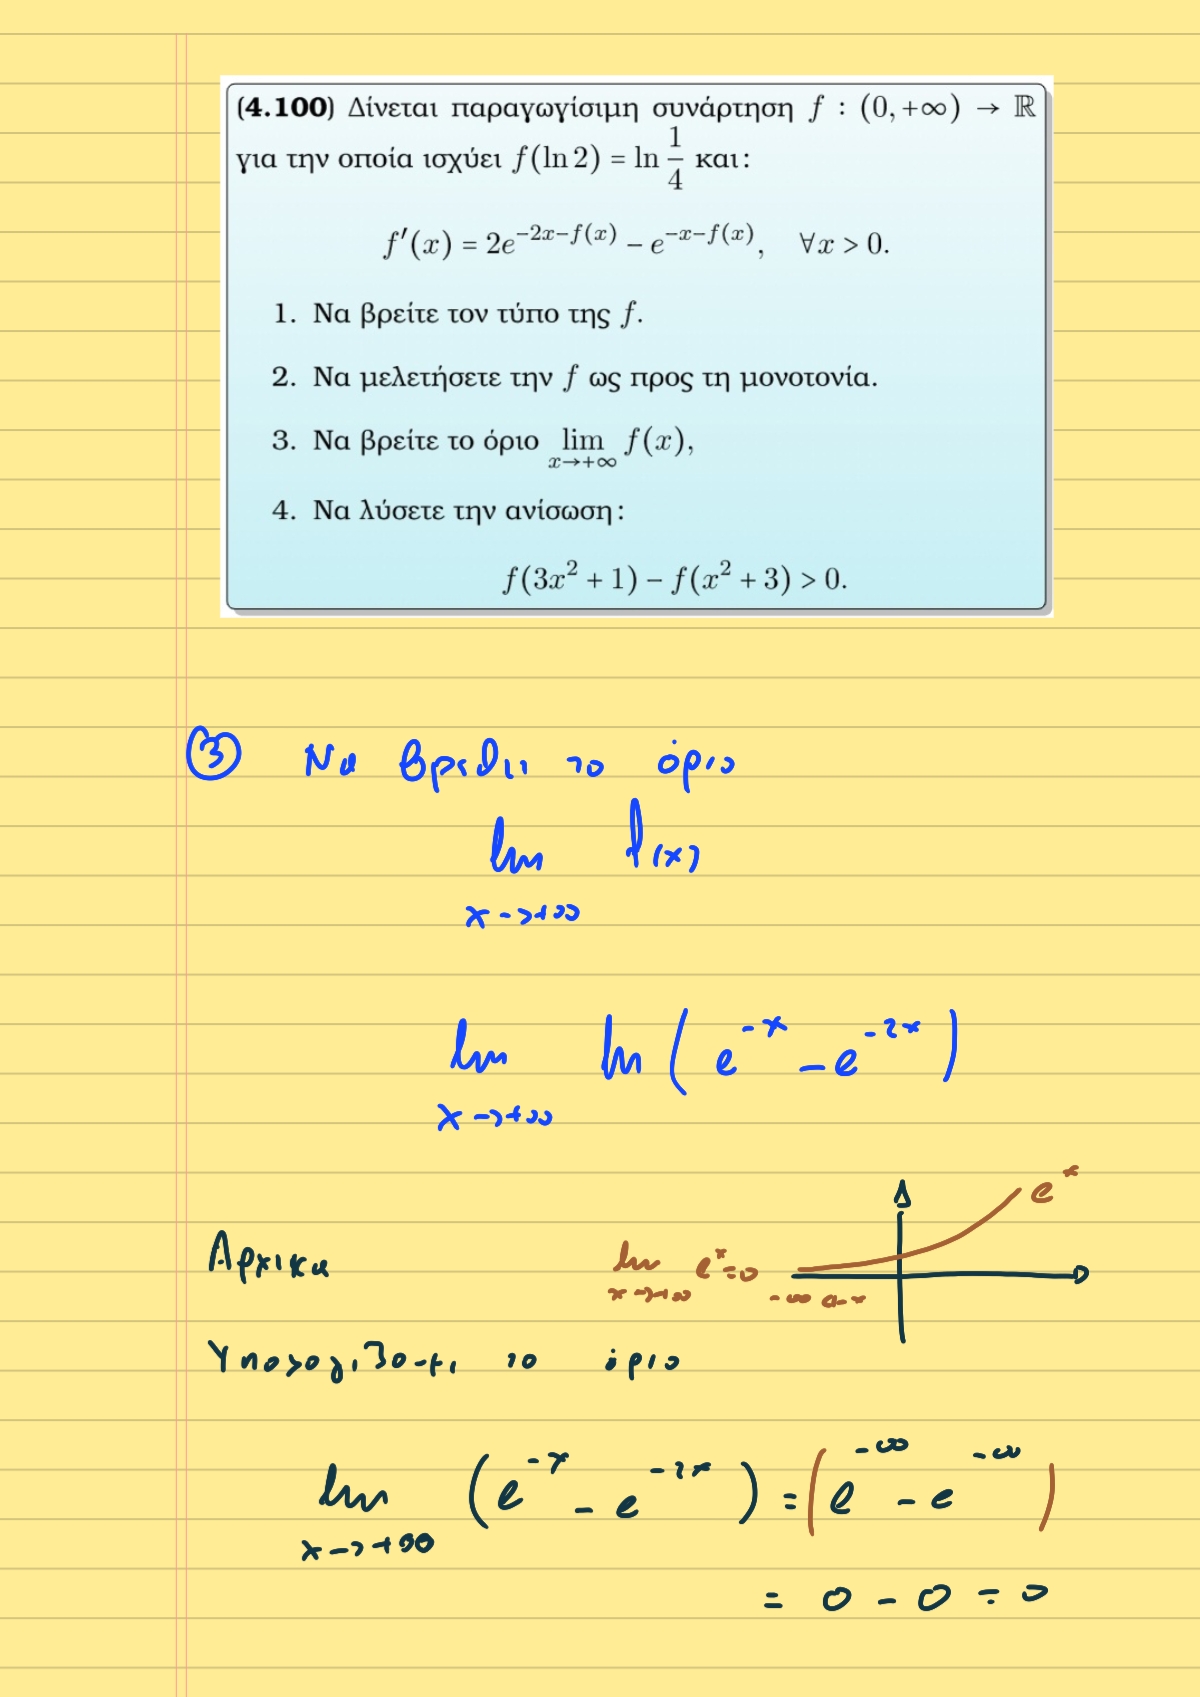 (4.100) Δίνεται παραγωγίσιμη συνάρτηση f : (0, +∞) → ℝ
για την οποία ισχύει f(ln 2) = ln 1/4 και:
f′(x) = 2e^{-2x-f(x)} − e^{-x-f(x)}, ∀x > 0.
1. Να βρείτε τον τύπο της f.
2. Να μελετήσετε την f ως προς τη μονοτονία.
3. Να βρείτε το όριο lim_{x→+∞} f(x),
4. Να λύσετε την ανίσωση:
f(3x² + 1) − f(x² + 3) > 0.
③ Να βρεθει το όριο
lim f(x)
x→+∞
lim ln(e^{-x} − e^{-2x})
x→+∞
e^x
Αρχικα lim e^x = 0
x→+∞ -∞
Υπολογιζουμε το όριο
lim (e^{-x} − e^{-2x}) = (e^{-∞} − e^{-∞})
x→+∞
= 0 − 0 = 0